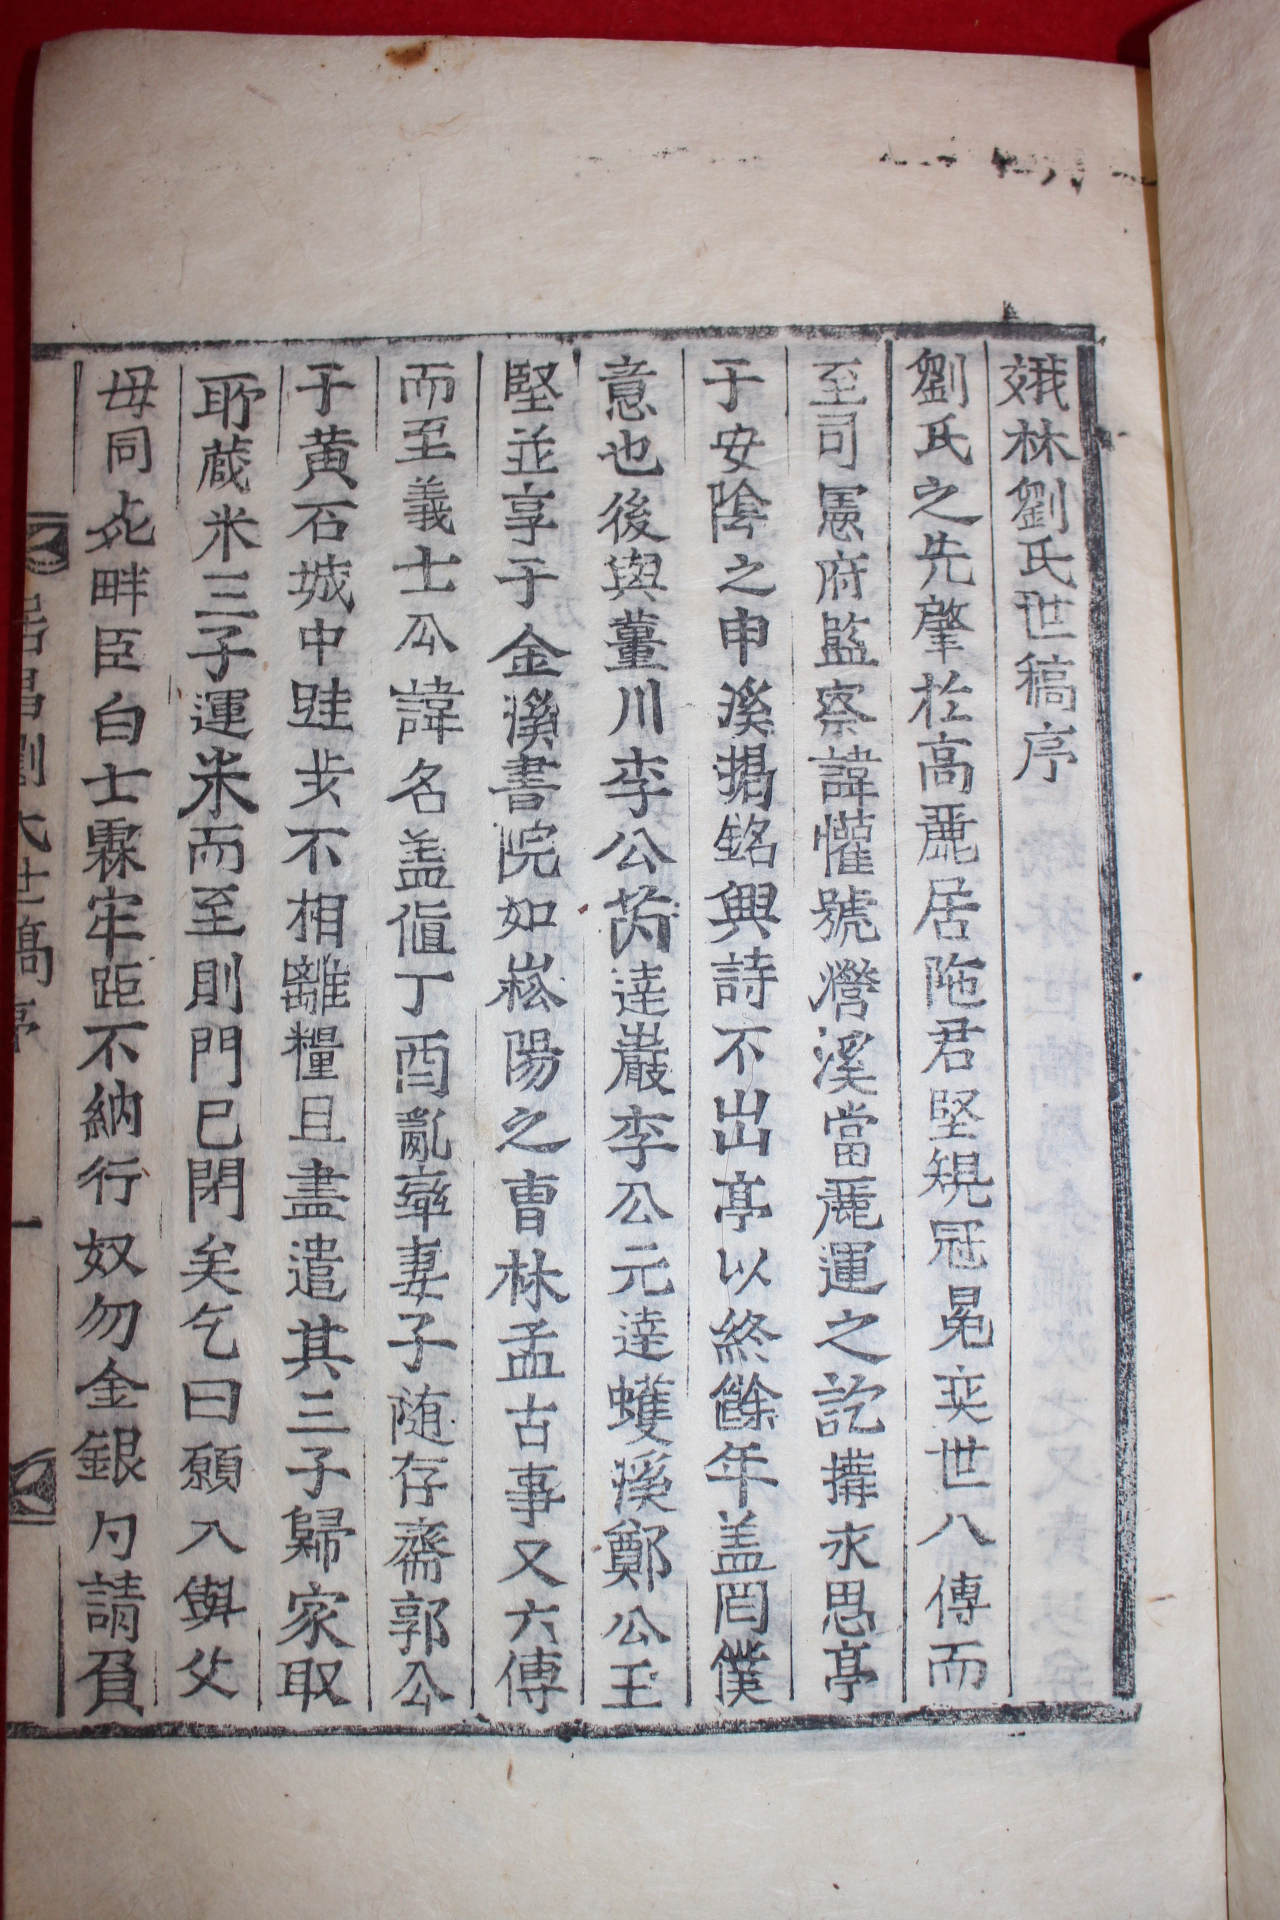 娥林劉氏世稿序
劉氏之先肇在高麗居陁君堅規冠冕奕世八傳而
至司憲府監察諱懽號濳溪當麗運之訖搆永思亭
于安陰之申溪揭銘興詩不出亭以終餘年盖罔僕
意也後與蕫川李公芮達巖李公元達蠖溪鄭公玉
堅並享于金溪書院如崧陽之曺林孟古事又六傳
而至義士公諱名盖值丁酉亂率妻子随存齋郭公
于黃石城中跬步不相離糧且盡遣其三子歸家取
所藏米三子運米而至則門已閉矣乞曰願入與父
母同死畔臣白士霖牢距不納行奴勿金銀勺請負
居昌劉氏世稿序
一